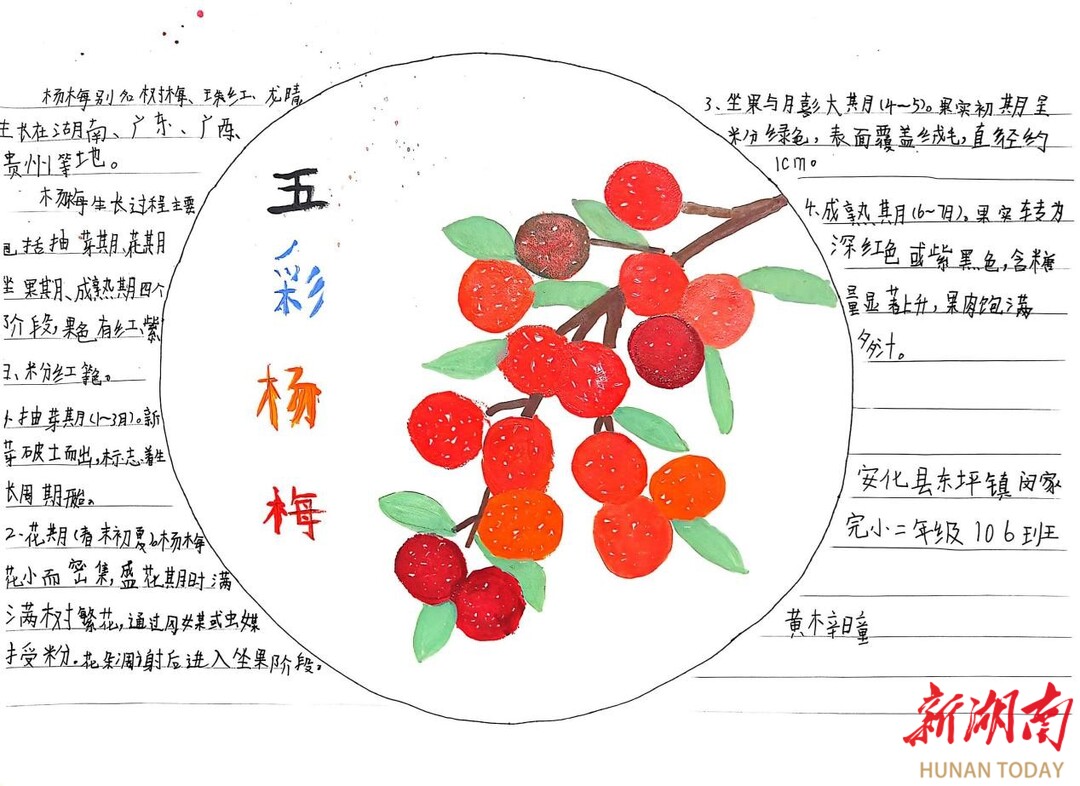 杨梅别名树梅、珠红、龙睛
生长在湖南、广东、广西、
贵州等地。
杨梅生长过程主要
包括抽芽期、花期
坐果期、成熟期四个
阶段,果色有红、紫
、粉红等。
1、抽芽期(1~3月)。新
芽破土而出,标志着生
长周期开始。
2、花期(春末初夏)。杨梅
花小而密集,盛花期时满
满树繁花,通过风媒或虫媒
授粉。花朵凋谢后进入坐果阶段。
五
彩
杨
梅
3、坐果与膨大期(4~5)。果实初期呈
粉绿色,表面覆盖绒毛,直径约
1cm。
4、成熟期(6~7月)。果实转为
深红色或紫黑色,含糖
量显著上升,果肉饱满
多汁。
安化县东坪镇闵家
完小二年级106班
黄梓瞳
新湖南
HUNAN TODAY